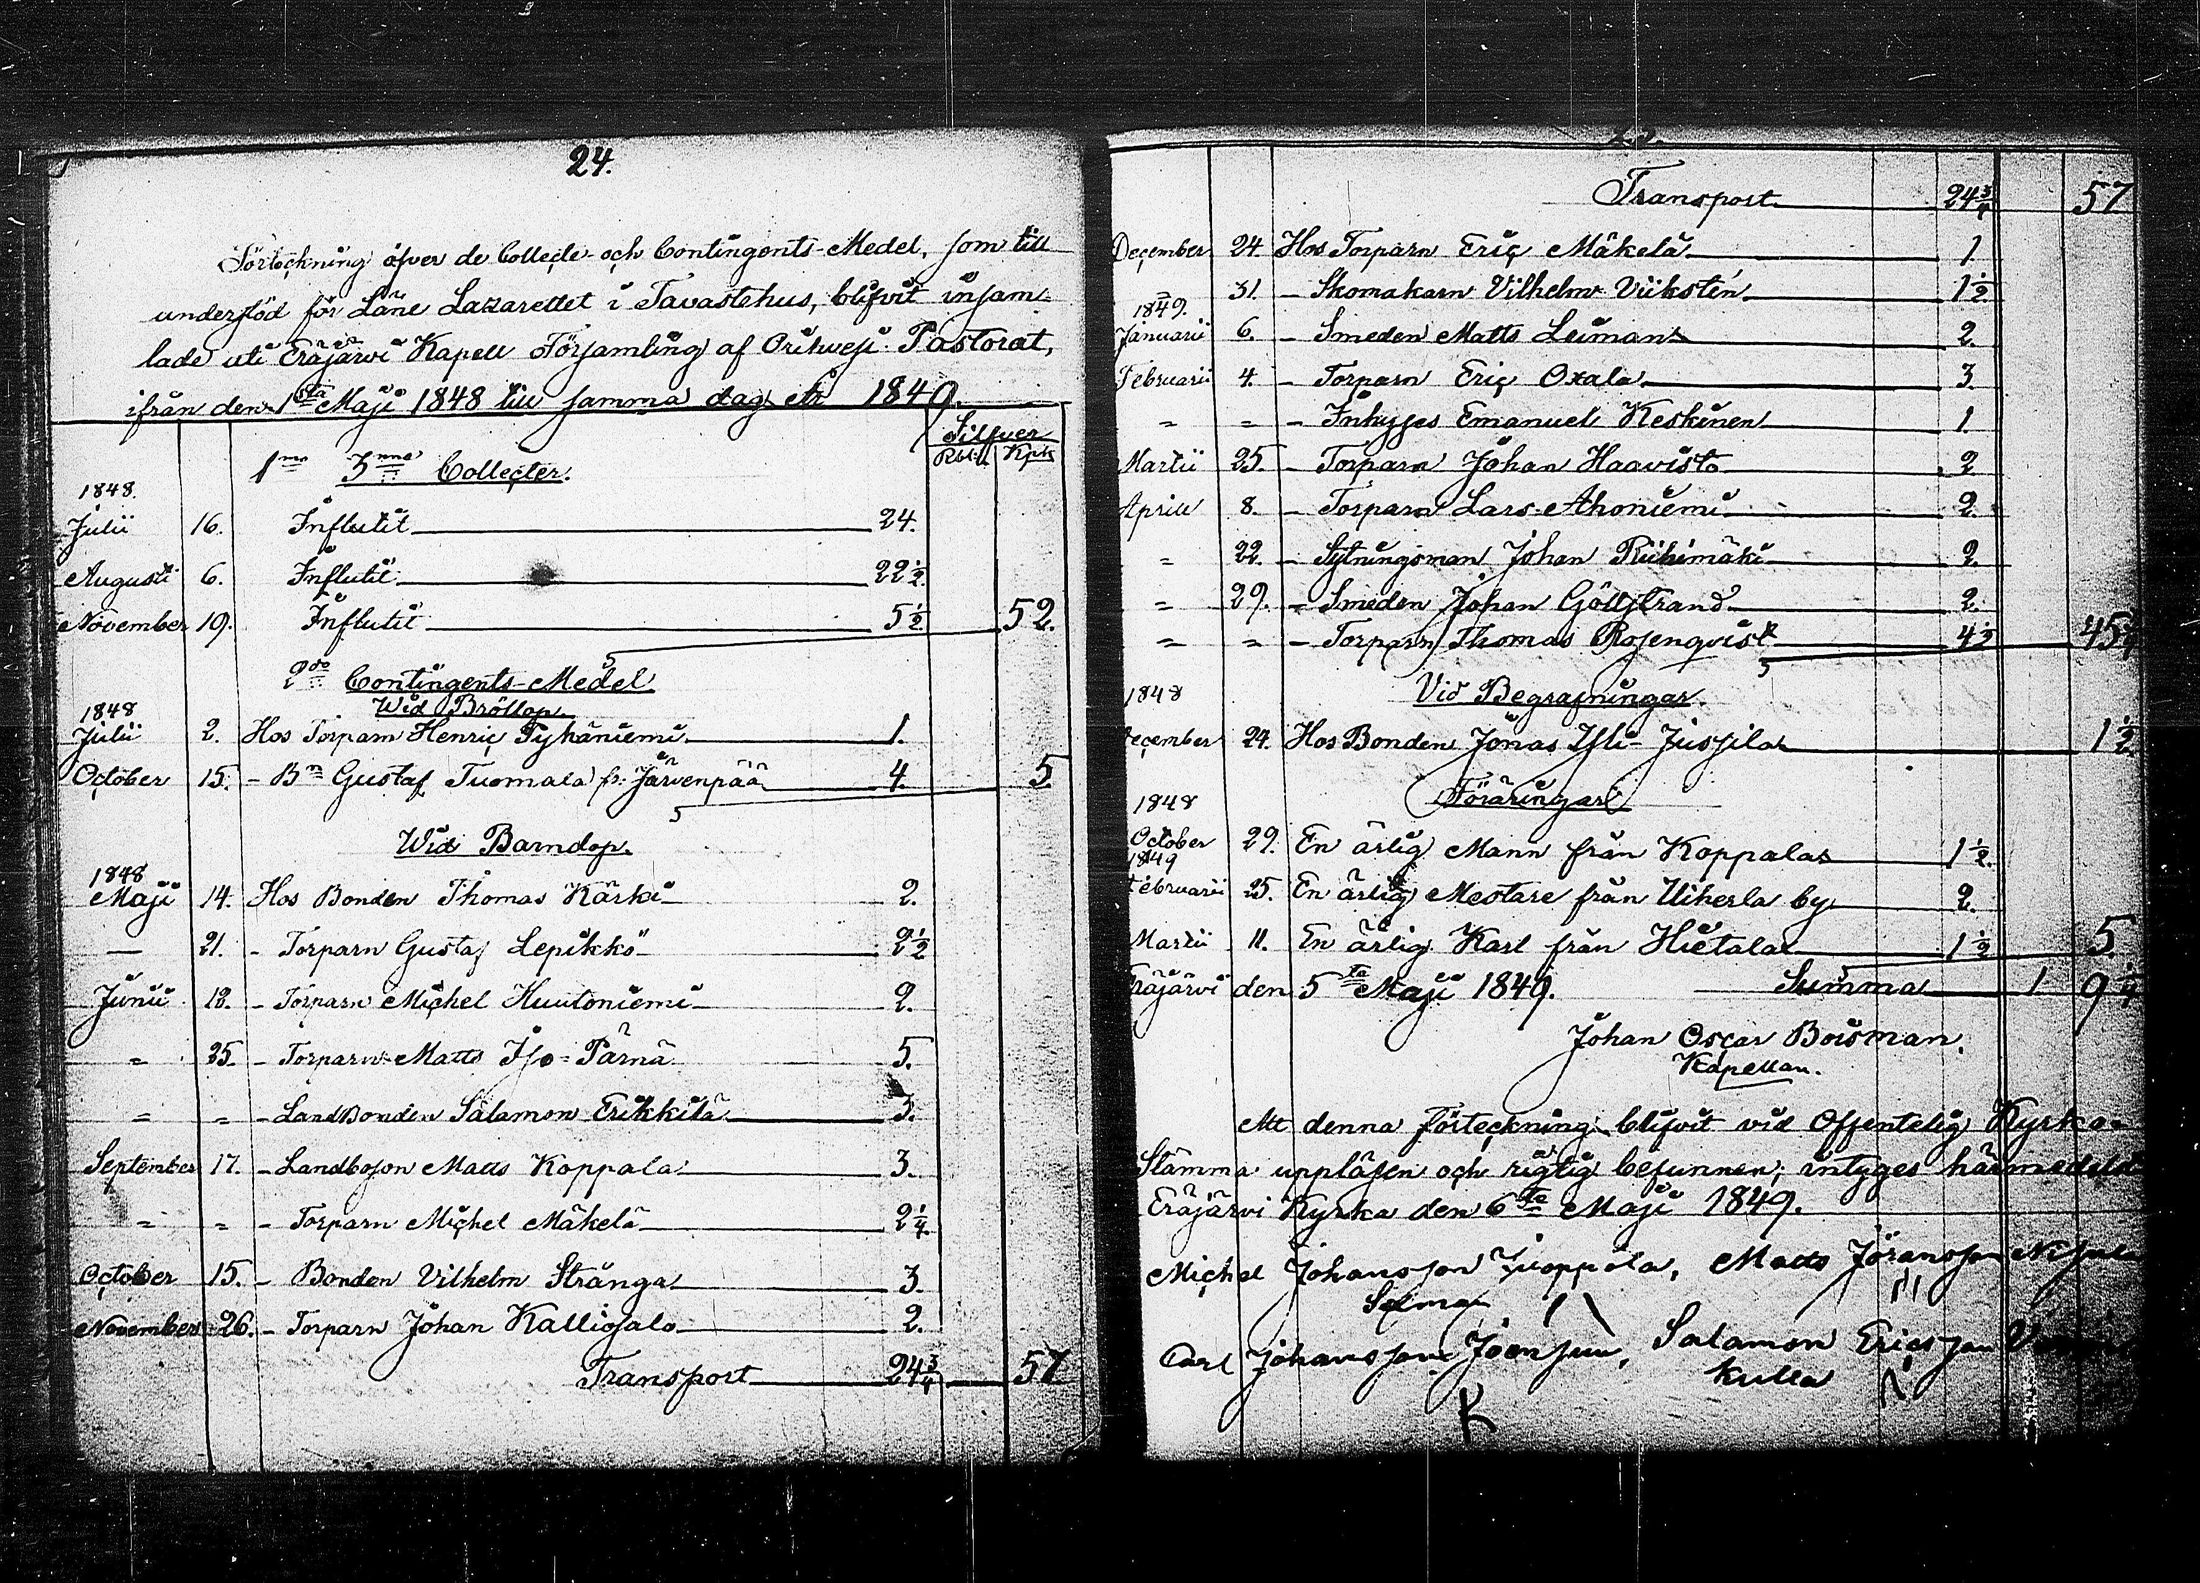 24.
Förteckning öfver de Collecte- och Contingents-Medel, som till
understöd för Läne Lazarettet i Tavastehus, blifvit insam-
lade uti Eräjärvi Kapell Församling af Orihvesi Pastorat,
ifrån den 1sta Maji 1848 till samma dag etc 1849.
Silfver
Rbl. Kpk
1mo 3nne Collecter.
1848.
Julii 16. Influtit 24.
Augusti 6. Influtit 22 1/2
November 19. Influtit 5 1/2 52.
2do Contingents-Medel
Wid Bröllop.
1848
Julii 2. Hos Torparn Henric Pyhäniemi 1.
October 15. - Bn Gustaf Tuomala fr. Järvenpää 4. 5
Wid Barndop.
1848
Maji 14. Hos Bonden Thomas Kärki 2.
— 21. - Torparn Gustaf Lepikkö 2 1/2
Junii 18. - Torparn Michel Huutoniemi 2.
" 25. - Torparn Matts Iso-Pärnä 5.
" " - Landbonden Salamon Erikkilä 3.
September 17. - Landboson Matts Koppala 3.
" " - Torparn Michel Mäkelä 2 1/4
October 15. - Bonden Vilhelm Stränga 3.
November 26. - Torparn Johan Kalliojalo 2.
Transport 24 3/4 57
Transport 24 3/4 57
December 24. Hos Torparn Eric Mäkelä 1
31. - Skomakarn Vilhelm Viikstén 1 1/2
1849.
Januarii 6. - Smeden Matts Leiman 2.
Februarii 4. - Torparn Eric Oxala 3
" " - Inhyses Emanuel Keskinen 1
Martii 25. - Torparn Johan Haavisto 2
Aprill 8. - Torparn Lars Ahoniemi 2.
" 22. - Sytningsman Johan Riihimäki 2.
" 29. - Smeden Johan Göllstrand 2.
" " - Torparn Thomas Rosenqvist 4 1/2 45 3/4
1848 Vid Begrafningar.
December 24. Hos Bonden Jonas Yli-Jussila 1 1/2
Föräringar
1848
October 29. En ärlig Mann från Koppala 1 1/2.
1849
Februarii 25. En ärlig Mestare från Uiherla by 2.
Martii 11. En ärlig Karl från Hietala 1 1/2 5.
Eräjärvi den 5te Maji 1849. Summa 1 9 1/4
Johan Oscar Boisman.
Kapellan.
Att denna förteckning blifvit vid Offentelig Kyrko-
Stämma uppläsen och rigtig befunnen, intyges härmedelst
Eräjärvi Kyrka den 6te Maji 1849.
Michel Johansson Juoppola, Matts Jöransson
Carl Johansson Joensuu, Salamon Ericsson
kulla